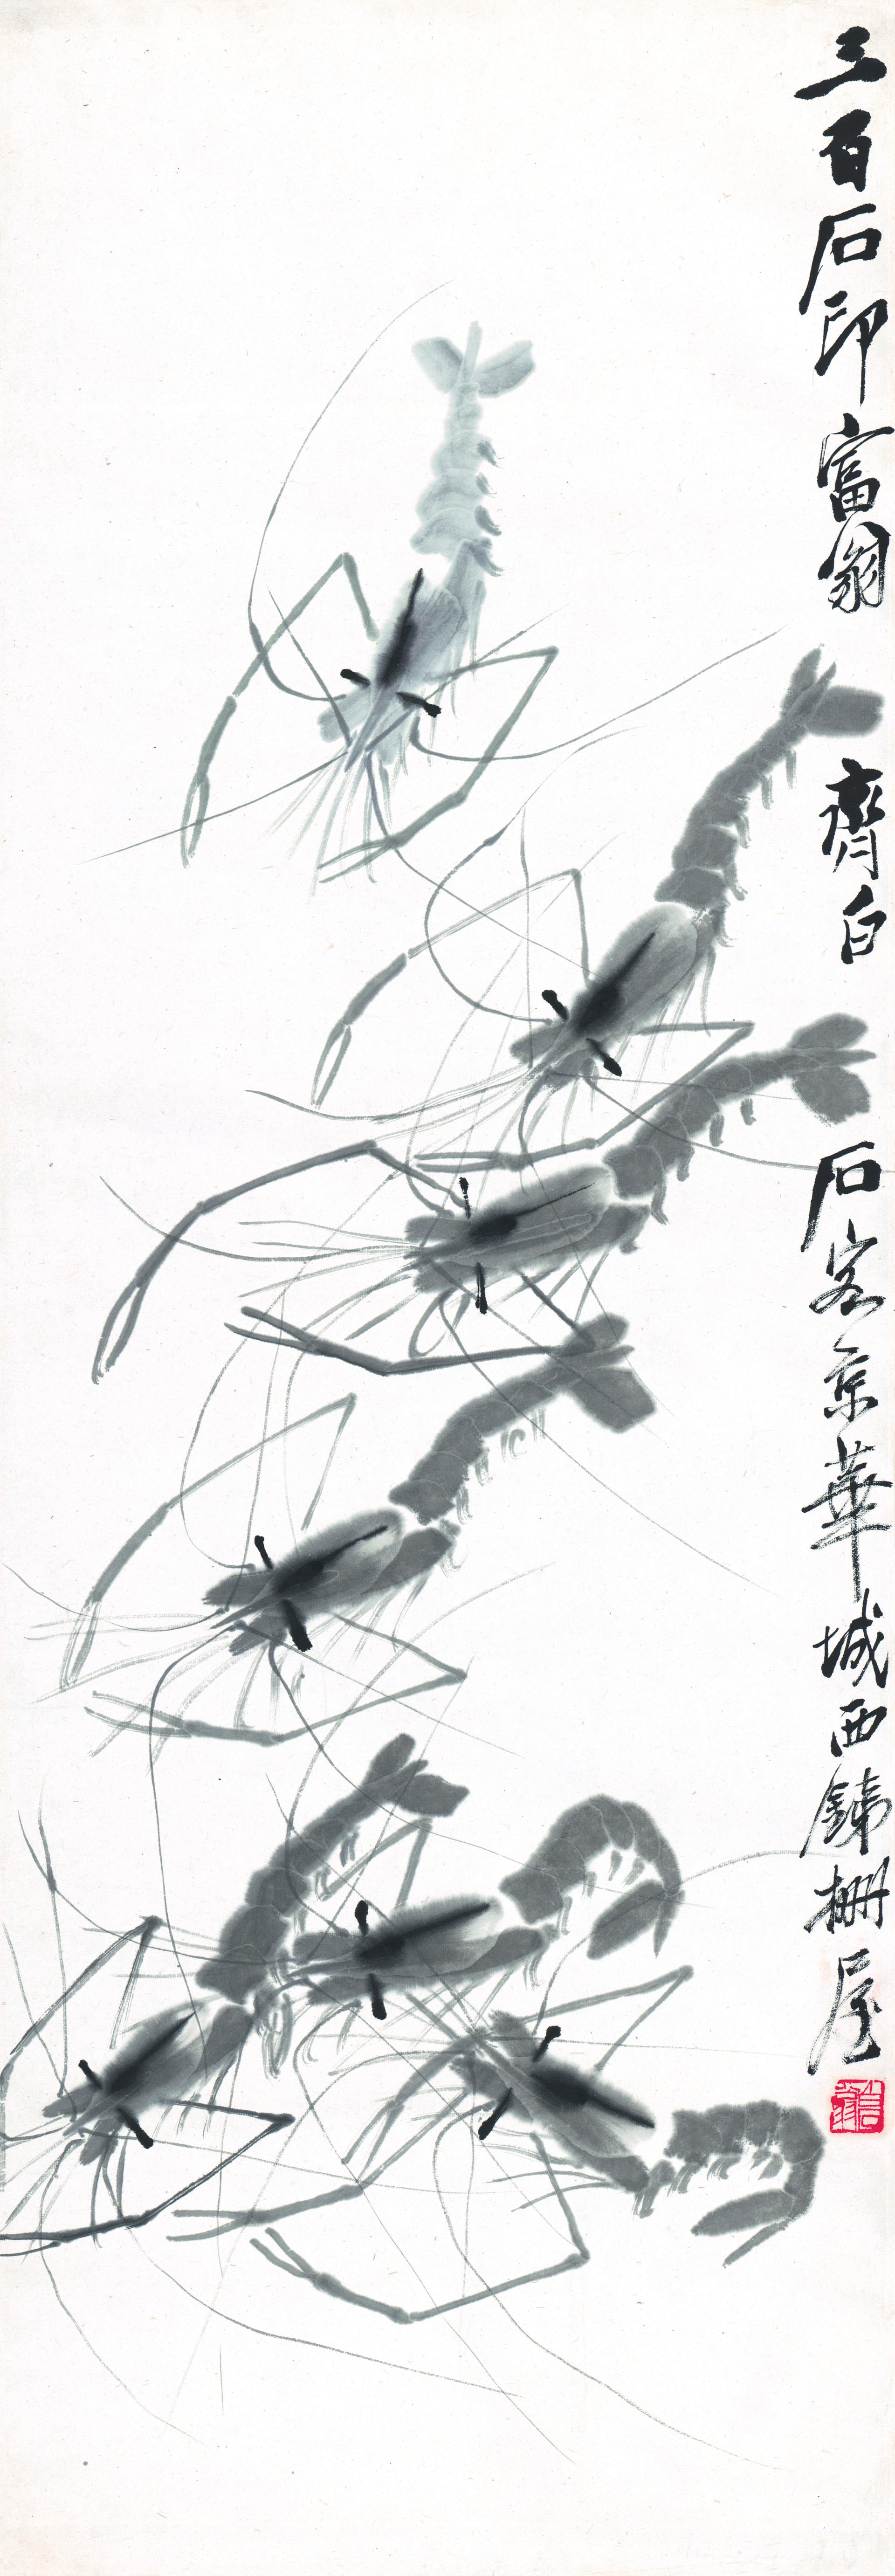 三百石印富翁齊白石客京華城西銕柵屋